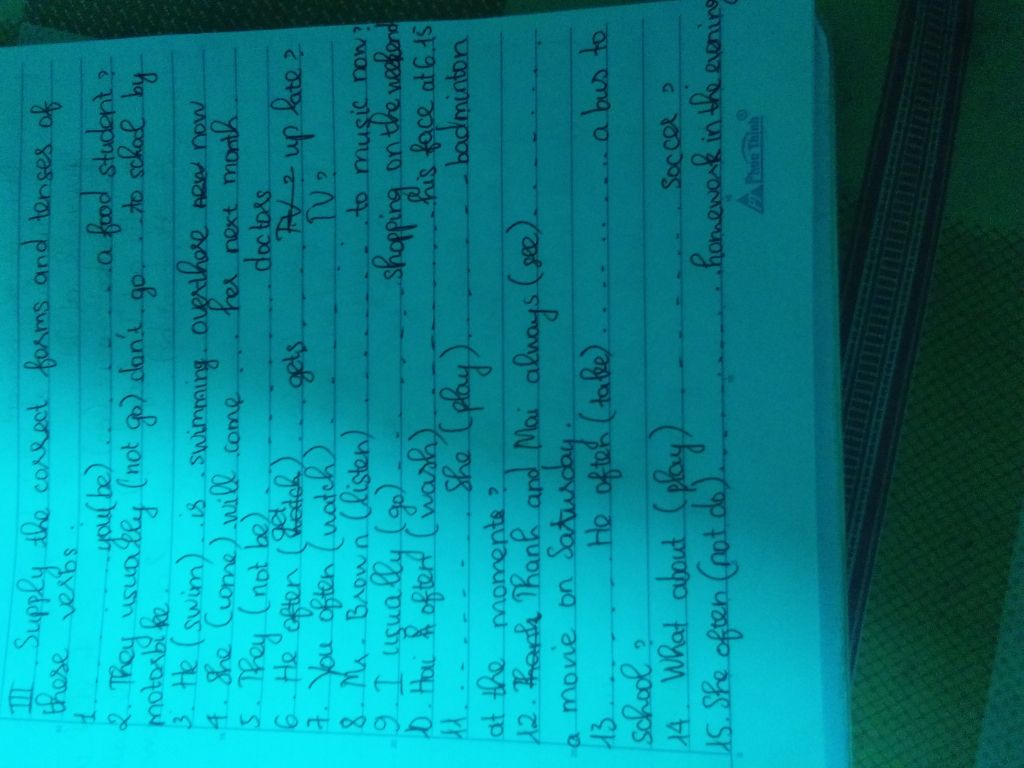 III Supply the correct forms and tenses of
these verbs.
1............you (be)............a food student?
2. They usually (not go) don't go.....to school by
motorbike
3. He (swim)..is..swimming overthore now now
4. She (come) will come......her next month
5. They (not be)..................doctors
6. He often (get)......gets......TV? up late?
7. You often (watch)..................TV?
8. Mr. Brown (listen)..................to music now?
9. I usually (go)..................shopping on the weekend
10. Hai often (wash)..................his face at 6.15
11..................She (play)..................badminton
at the moment?
12. Thanh Thanh and Mai always (see)..................
a movie on Saturday.
13..................He often (take)..................a bus to
school?
14. What about (play)..................soccer?
15. She often (not do)..................homework in the evening
Phúc Thịnh